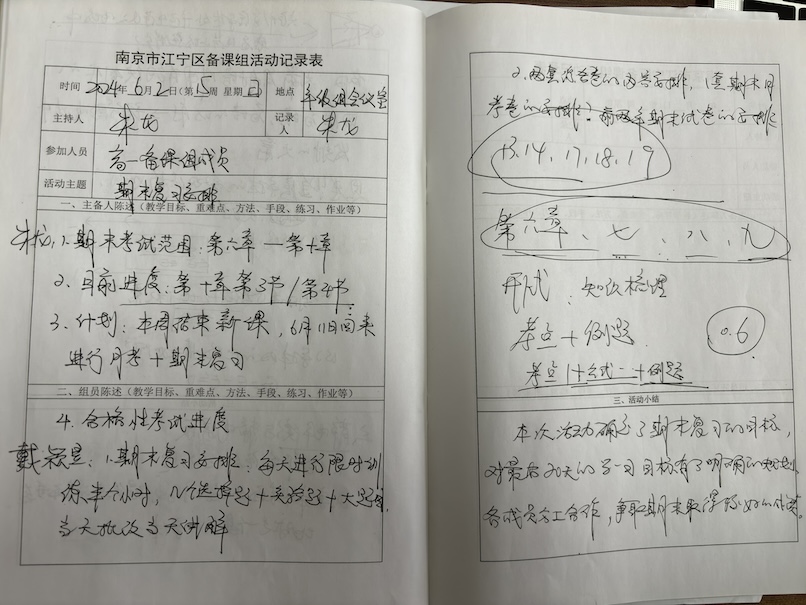 南京市江宁区备课组活动记录表
时间 2024年6月2日(第15周 星期日) 地点 年级组会议室
主持人 朱龙 记录人 朱龙
参加人员 高一备课组成员
活动主题 期末复习安排
一、主备人陈述(教学目标、重难点、方法、手段、练习、作业等)
朱龙:1.期末考试范围:第六章—第十章
2.目前进度:第十章第3节/第4节
3.计划:本周结束新课,6月11日回来
进行月考+期末复习
二、组员陈述(教学目标、重难点、方法、手段、练习、作业等)
4.合格性考试进度
戴颖昱:1.期末复习安排:每天进行限时训
练半个小时,N个选择题+实验题+大题
当天批改当天讲解
2.两套卷的内容安排,1套期末月
考卷的安排?前两年期末试卷的安排
13、14、17、18、19
第六章、七、八、九
形式:知识梳理
考点+例题
0.6
考点1+公式一+例题
三、活动小结
本次活动确定了期末复习的目标,
对最后20天的学习目标有了明确的规划
各成员分工合作,争取期末取得较好的成绩。